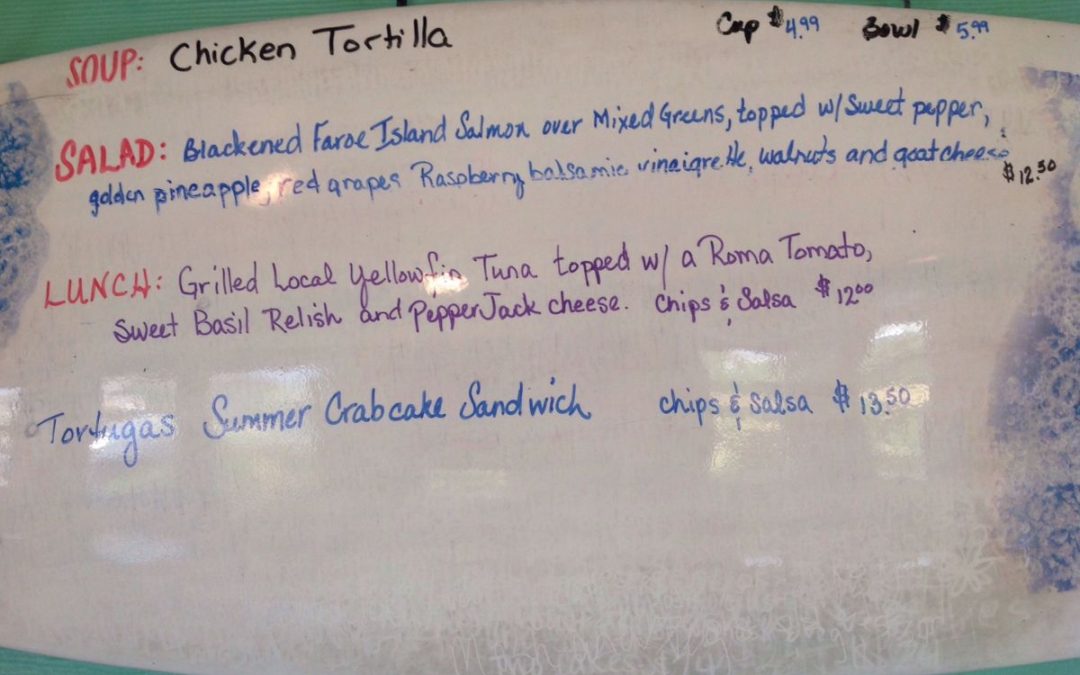 SOUP: Chicken Tortilla Cup $4.99 Bowl $5.99
SALAD: Blackened Faroe Island Salmon over Mixed Greens, topped w/ Sweet pepper,
golden pineapple, red grapes Raspberry balsamic vinaigrette, walnuts and goat cheese $12.50
LUNCH: Grilled Local Yellowfin Tuna topped w/ a Roma Tomato,
Sweet Basil Relish and PepperJack cheese. Chips & Salsa $12.00
Tortugas Summer Crabcake Sandwich chips & Salsa $13.50